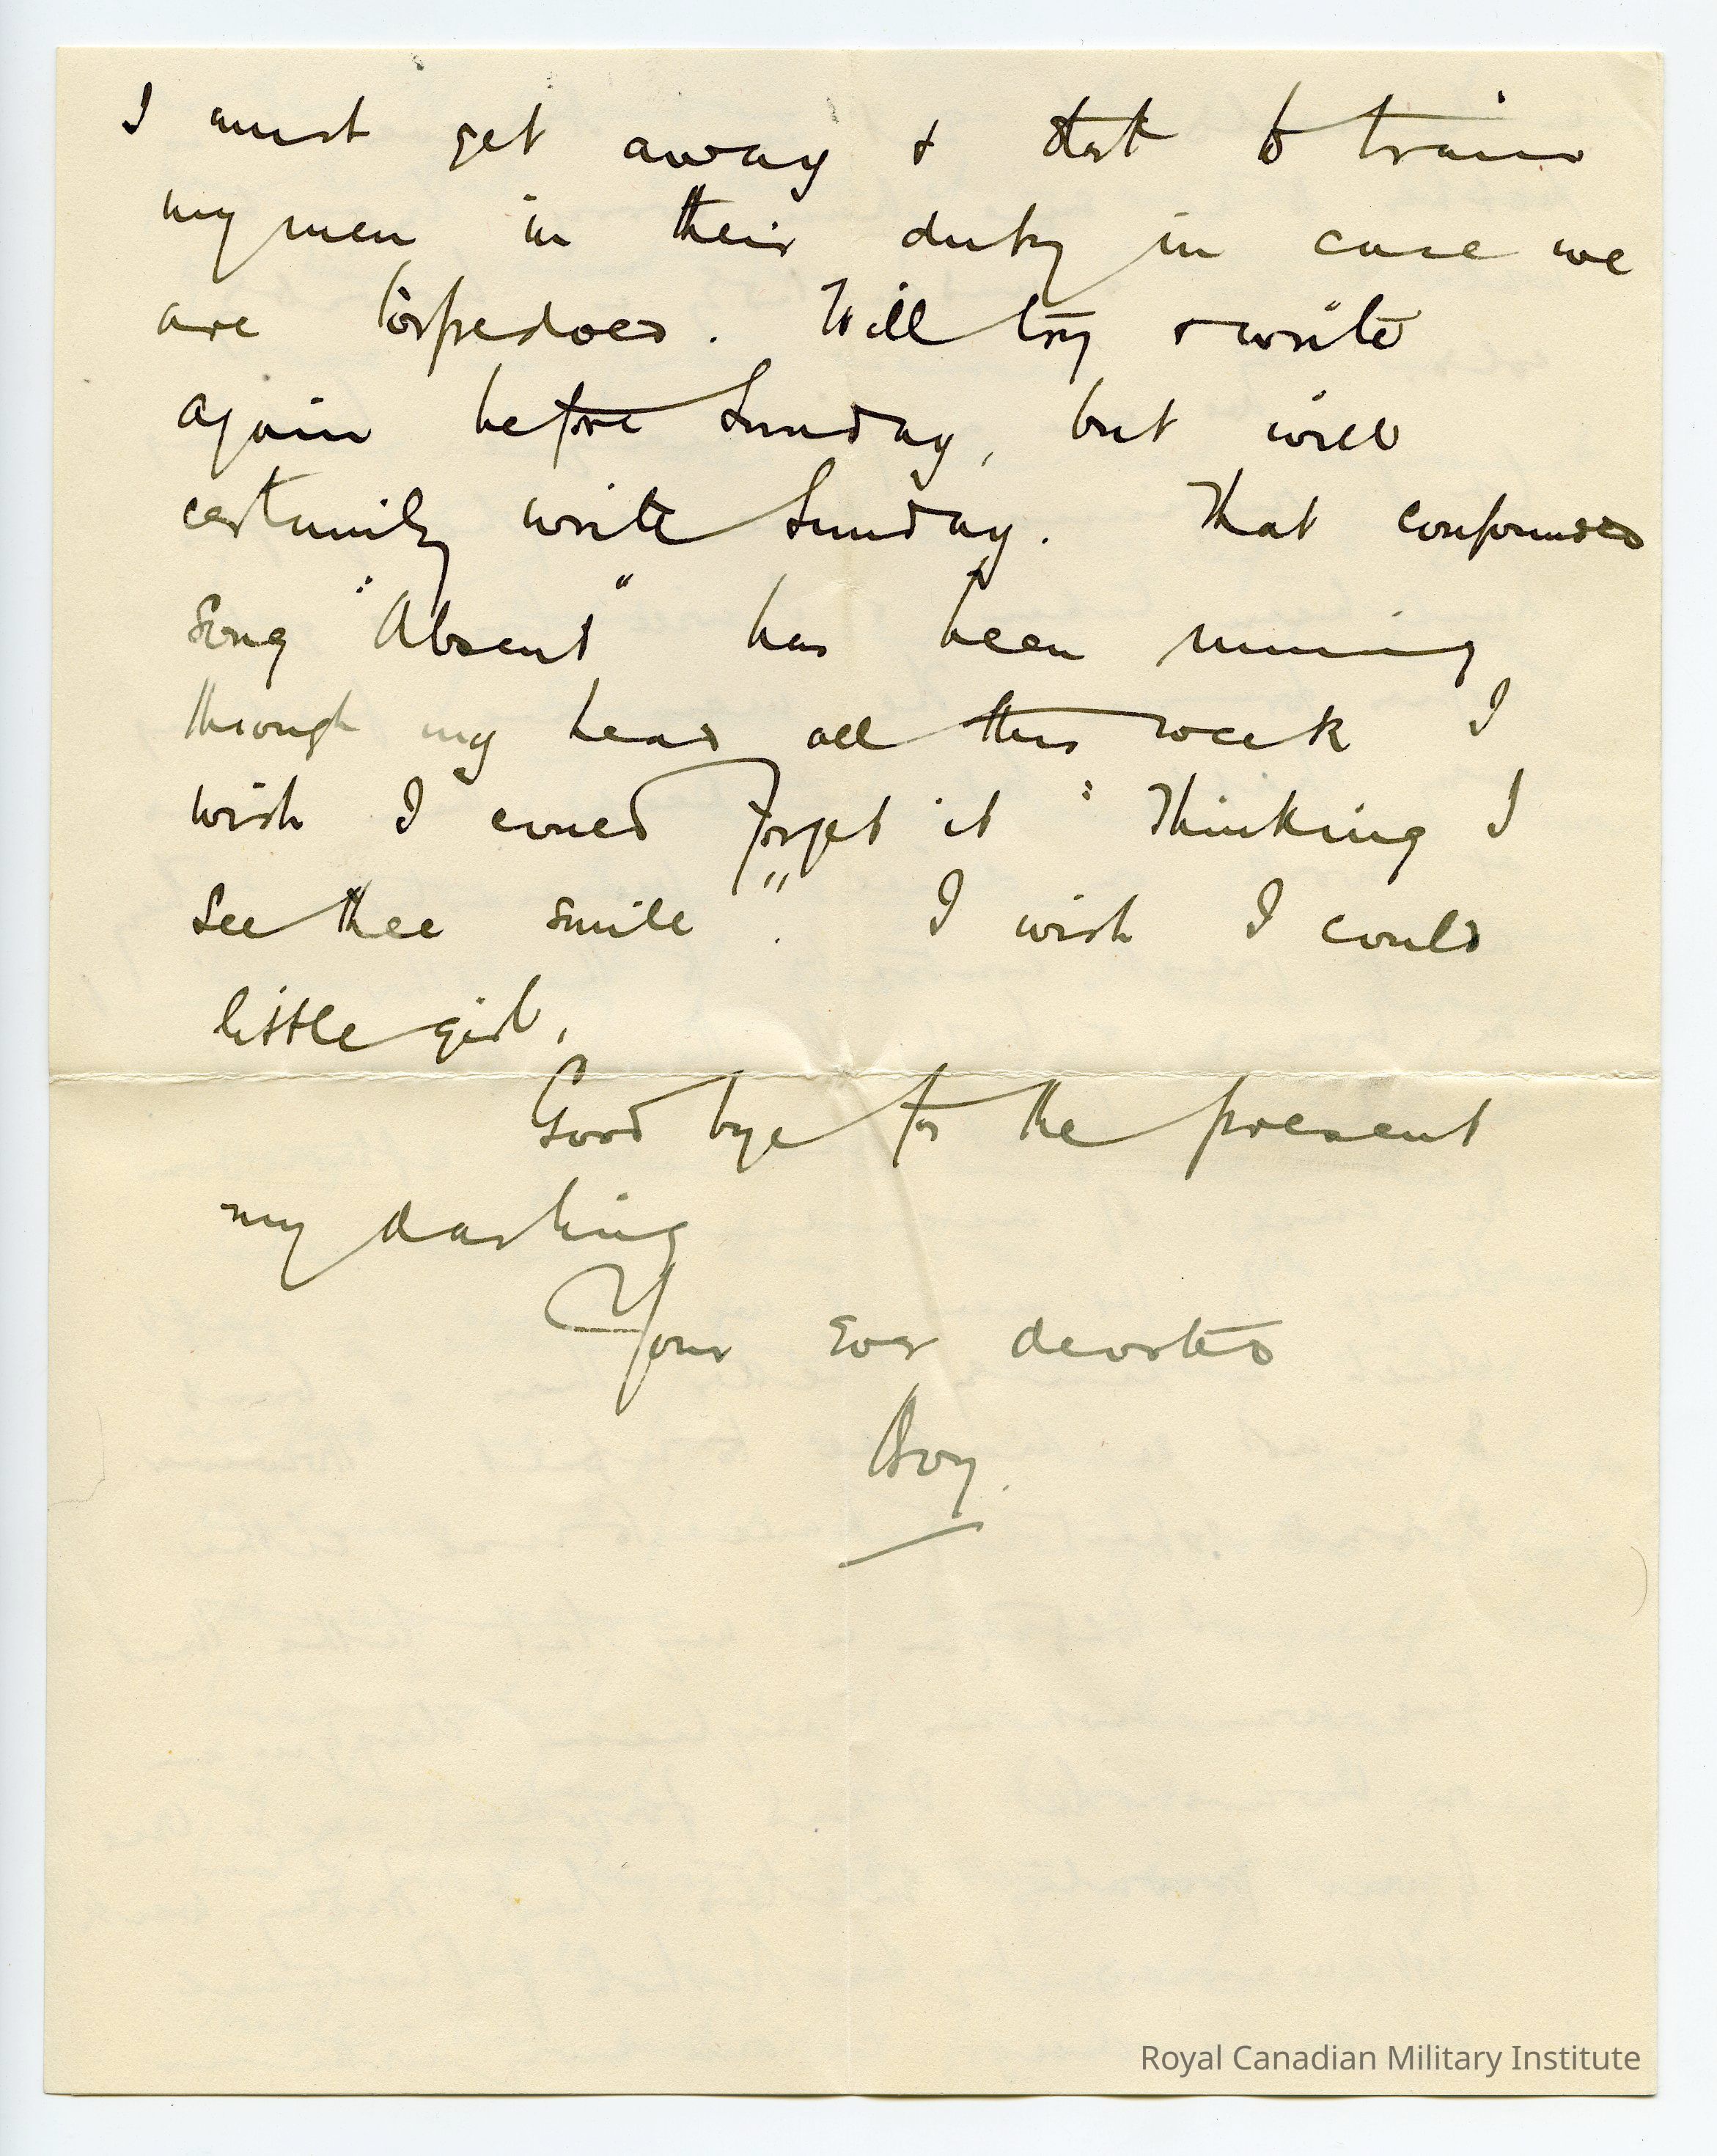 I must get away & start to train
my men in their duty in case we
are torpedoed. Will try & write
again before Sunday, but will
certainly write Sunday. That confounded
song "Absent" has been running
through my head all this week I
wish I could forget it "Thinking I
see thee smile". I wish I could
little girl.
Good bye for the present
my darling
Your ever devoted
Boy.
Royal Canadian Military Institute